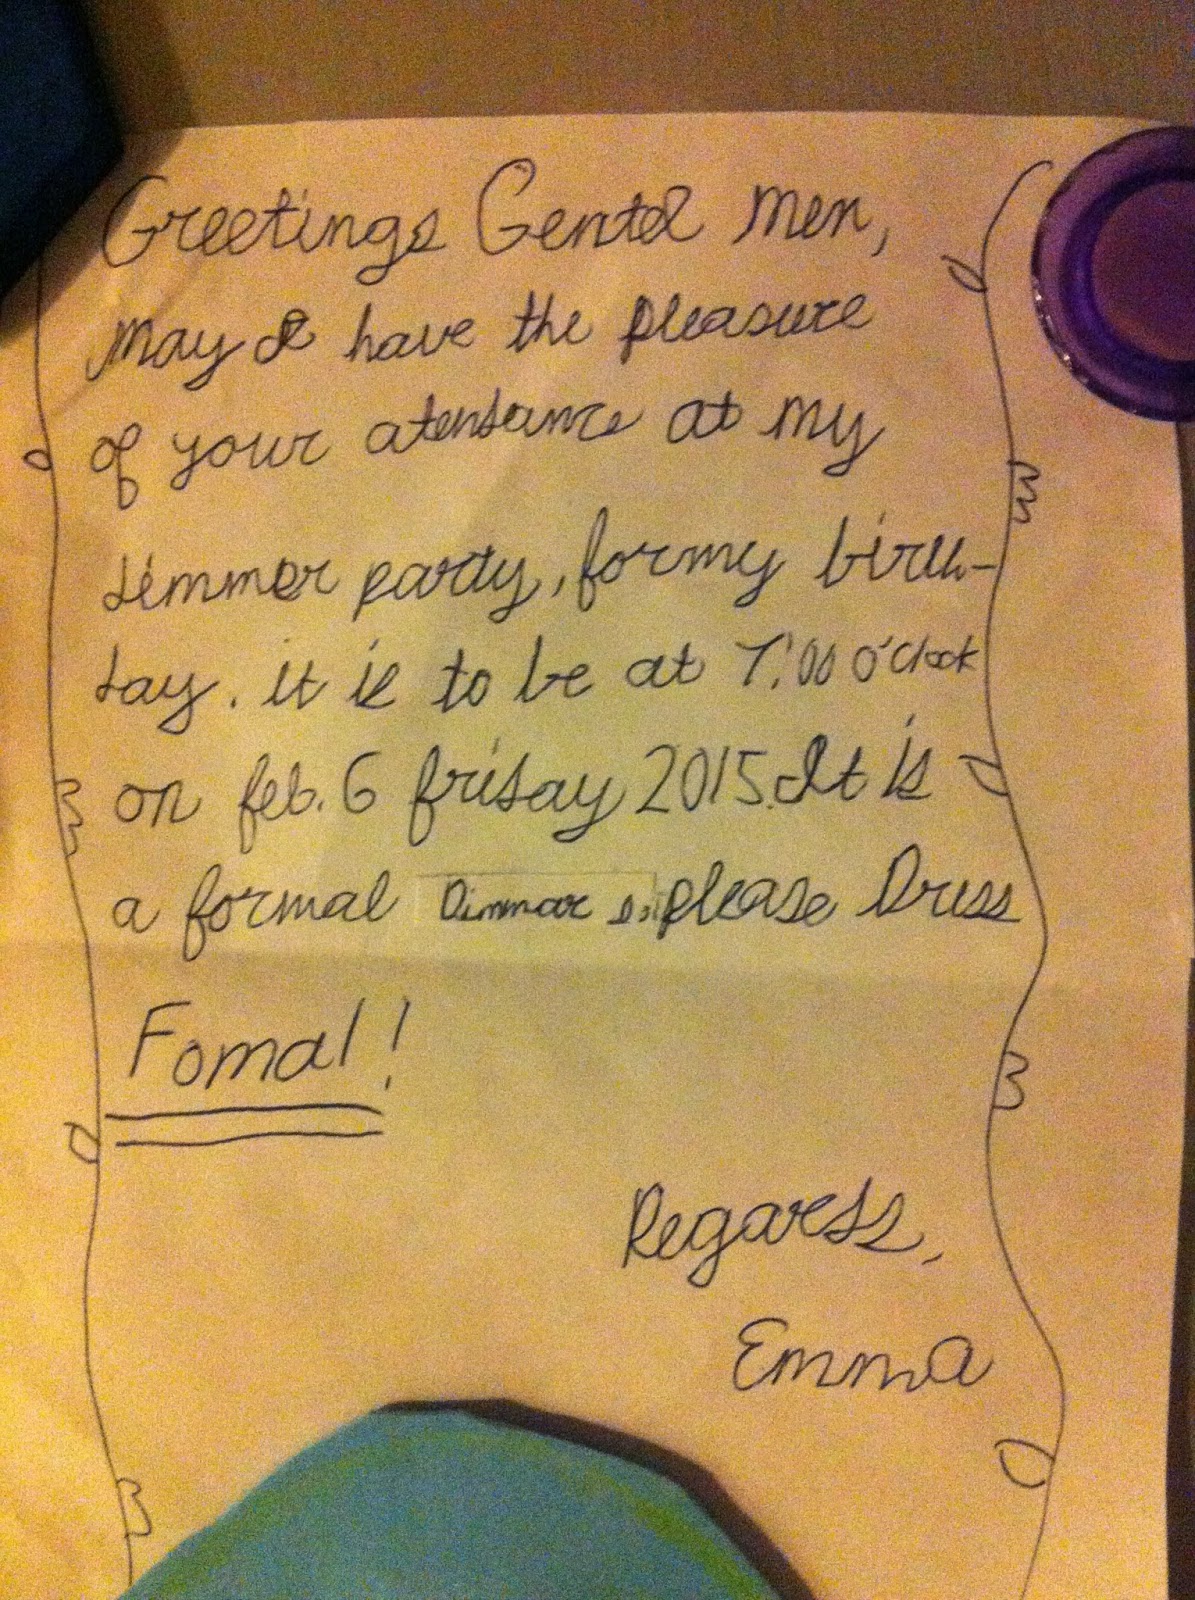 Greetings Gentel men,
may I have the pleasure
of your atendance at my
dinner party, for my birth-
day. it is to be at 7:00 o'clock
on feb. 6 friday 2015. It is
a formal Dinnar please Dress
Fomal!
Regards,
Emma